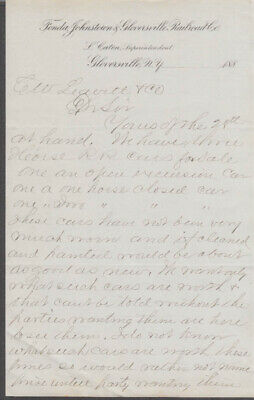 Fonda, Johnstown & Gloversville Railroad Co
L. Caten, Superintendent
Gloversville, N.Y. 188
Dr Sir
Yours of the 28th
at hand. We have three
Horse R.R. cars for sale
one an open excursion car
one a one horse closed car
one, two " " "
These cars have not been very
much worn and if cleaned
and painted would be about
as good as new. We want only
what such cars are worth &
that can't be told without the
parties wanting them are here
to see them. I do not know
what such cars are worth these
times so would rather not name
price until party wanting them